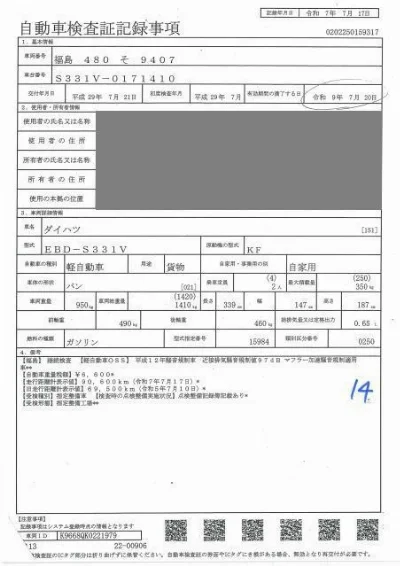 記録年月日 令和 7年 7月 17日
自動車検査証記録事項
0202250159317
1.基本情報
車両番号 福島 480 そ 9407
車台番号 S331V-0171410
交付年月日 平成 29年 7月 21日 初度検査年月 平成 29年 7月 有効期間の満了する日 令和 9年 7月 20日
2.使用者・所有者情報
使用者の氏名又は名称
使用者の住所
所有者の氏名又は名称
所有者の住所
使用の本拠の位置
3.車両詳細情報
車名 ダイハツ [151]
型式 EBD-S331V 原動機の型式 KF
自動車の種別 軽自動車 用途 貨物 自家用・事業用の別 自家用
車体の形状 バン [021] 乗車定員 (4) 2人 最大積載量 (250) 350kg
車両重量 950kg 車両総重量 (1420) 1410kg 長さ 339cm 幅 147cm 高さ 187cm
前軸重 490kg 後軸重 460kg 総排気量又は定格出力 0.65L
燃料の種類 ガソリン 型式指定番号 15984 類別区分番号 0250
4.備考
【福島】 継続検査 【軽自動車OSS】 平成12年騒音規制車 近接排気騒音規制値97dB マフラー加速騒音規制適用
車**
【自動車重量税額】¥6,600*
【走行距離計表示値】90,600km(令和7年7月17日)*
【旧走行距離計表示値】69,500km(令和5年7月10日)*
【受検種別】指定整備車 【検査時の点検整備実施状況】点検整備記録簿記載あり*
【受検形態】指定整備工場**
14
【注意事項】
記録事項はシステム登録時点の情報となります
車両ID K9668QK0221979
22-00906